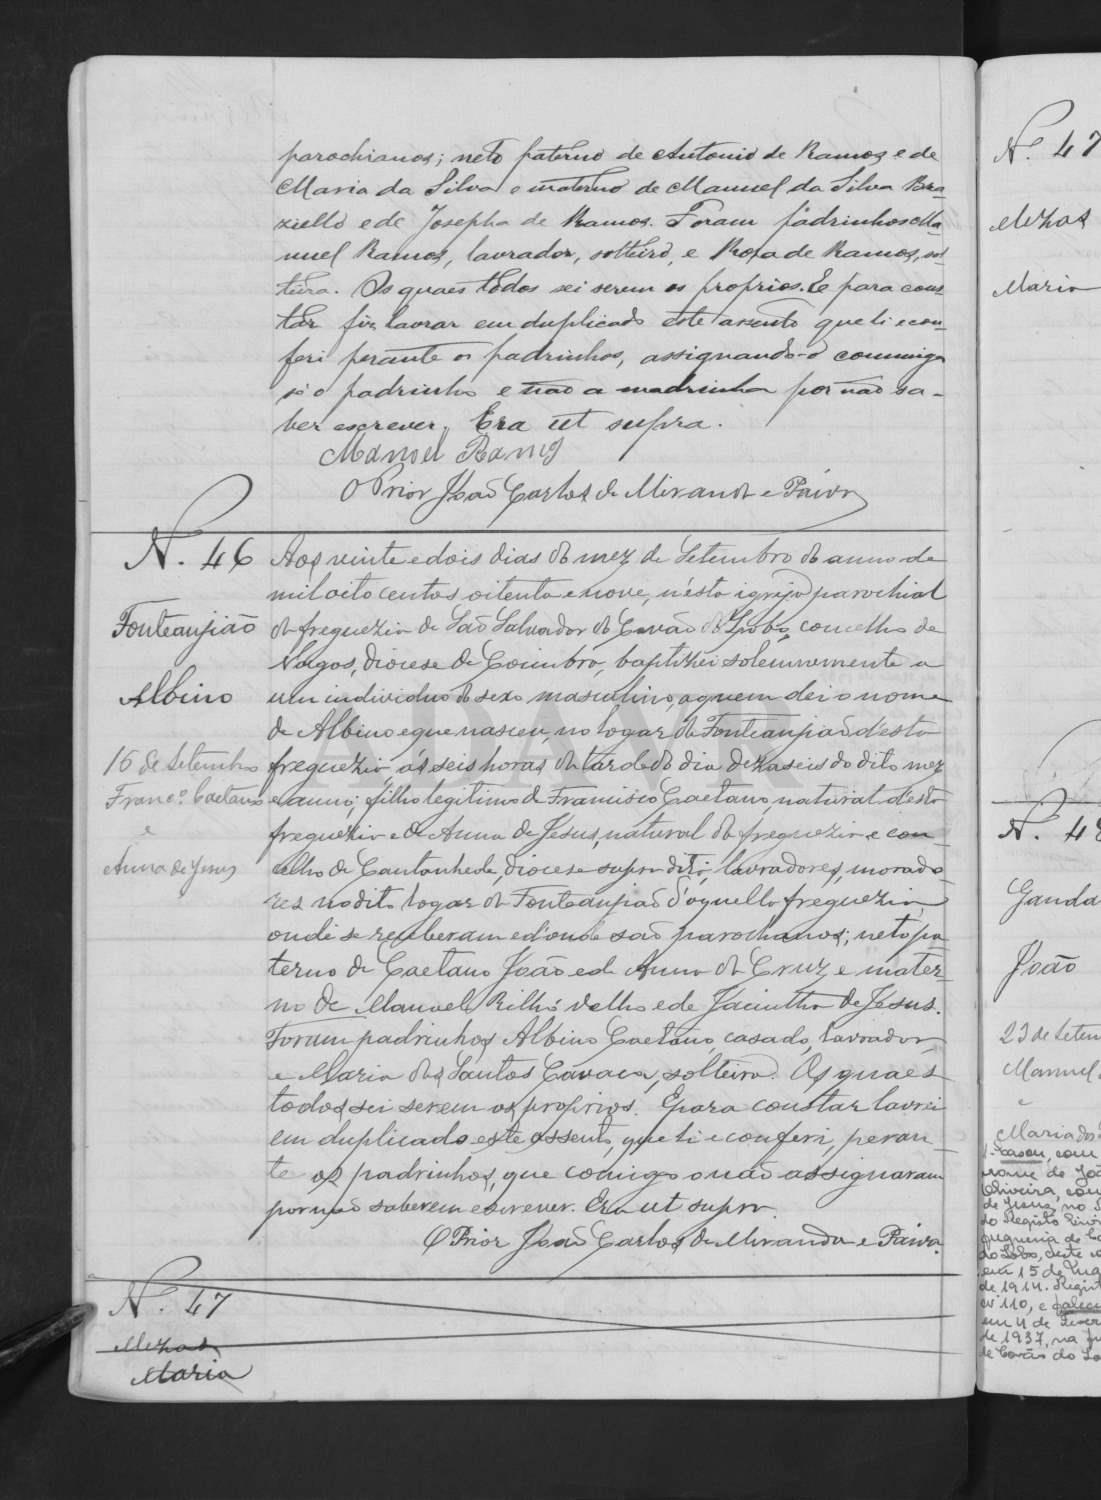 parochianos; neto paterno de Antonio de Ramos e de
Maria da Silva e materno de Manuel da Silva Bra-
ziello e de Josepha de Ramos. Foram padrinhos Ma-
nuel Ramos, lavrador, solteiro, e Rosa de Ramos, sol-
teira. Os quaes todos sei serem os proprios. E para cons-
tar fiz lavrar em duplicado este assento que li e con-
feri perante os padrinhos, assignando-o commigo
só o padrinho e não a madrinha por não sa-
ber escrever. Era ut supra.
Manoel Ramos
O Prior João Carlos de Miranda e Paiva
N. 46
Fonteanjião
Albino
16 de Setembro
Franc.º Caetano
e
Anna de Jesus
Aos vinte e dois dias do mez de Setembro do anno de
mil oito centos oitenta e nove, n'esta igreja parochial
da freguezia de São Salvador de Covão do Lobo, concelho de
Vagos, diocese de Coimbra, baptizei solemnemente a
um individuo do sexo masculino, a quem dei o nome
de Albino e que nasceu, no logar da Fonteanjião d'esta
freguezia, ás seis horas da tarde do dia dezaseis do dito mez
e anno; filho legitimo de Francisco Caetano, natural d'esta
freguezia e de Anna de Jesus, natural da freguezia e con-
celho de Cantanhede, diocese supra dita, lavradores, morado-
res no dito logar da Fonteanjião d'aquella freguezia,
onde se receberam e d'onde são parochianos; neto pa-
terno de Caetano João e de Anna da Cruz e mater-
no de Manoel Rilhó velho e de Jacintha de Jesus.
Foram padrinhos Albino Caetano, casado, lavrador,
e Maria dos Santos Cavaca, solteira. Os quaes
todos sei serem os proprios. E para constar lavrei
em duplicado este assento, que li e conferi, peran-
te os padrinhos, que comigo o não assignaram
por não saberem escrever. Era ut supra.
O Prior João Carlos de Miranda e Paiva.
N. 47
Mezas
Maria
N. 47
Mezas
Maria
N. 48
Ganda
João
23 de Setem
Manuel
e
Maria dos
Casou, com
nome de Joã
Oliveira, com
de Jesus, no
do Registo Civil
freguesia de Co
do Lobo, deste
em 15 de
de 1914. Regist
nº 110, e faleceu
em 4 de Fever
de 1937, na fr
de Covão do Lo
ADAVR